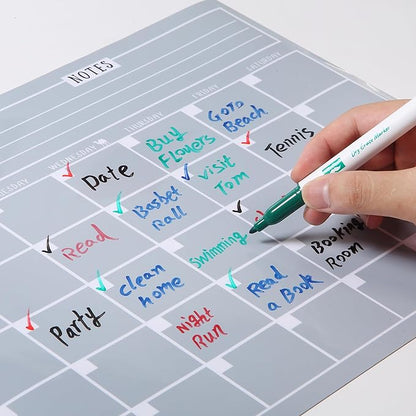 NOTES
SATURDAY
FRIDAY
THURSDAY
WEDNESDAY
SDAY
GOTO
Beach
Buy
Flovers
Tennis
visit
Tom
Date
Basket
Ball
Read
Swimming
Booking
Room
clean
home
Read
a Book
Party
Night
Run
Dry Erase Marker